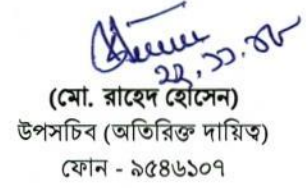 ২২.১১.২০
(মো. রাহেদ হোসেন)
উপসচিব (অতিরিক্ত দায়িত্ব)
ফোন - ৯৫৪৬১০৭